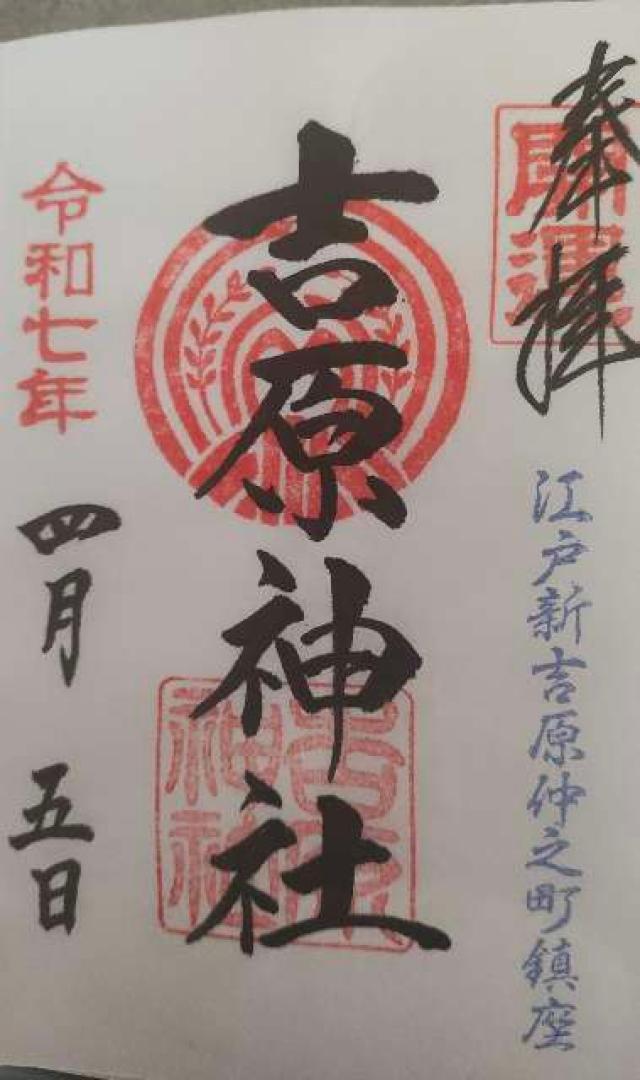 奉拝
開運
江戸新吉原仲之町鎮座
吉原神社
吉原神社
令和七年
四月
五日